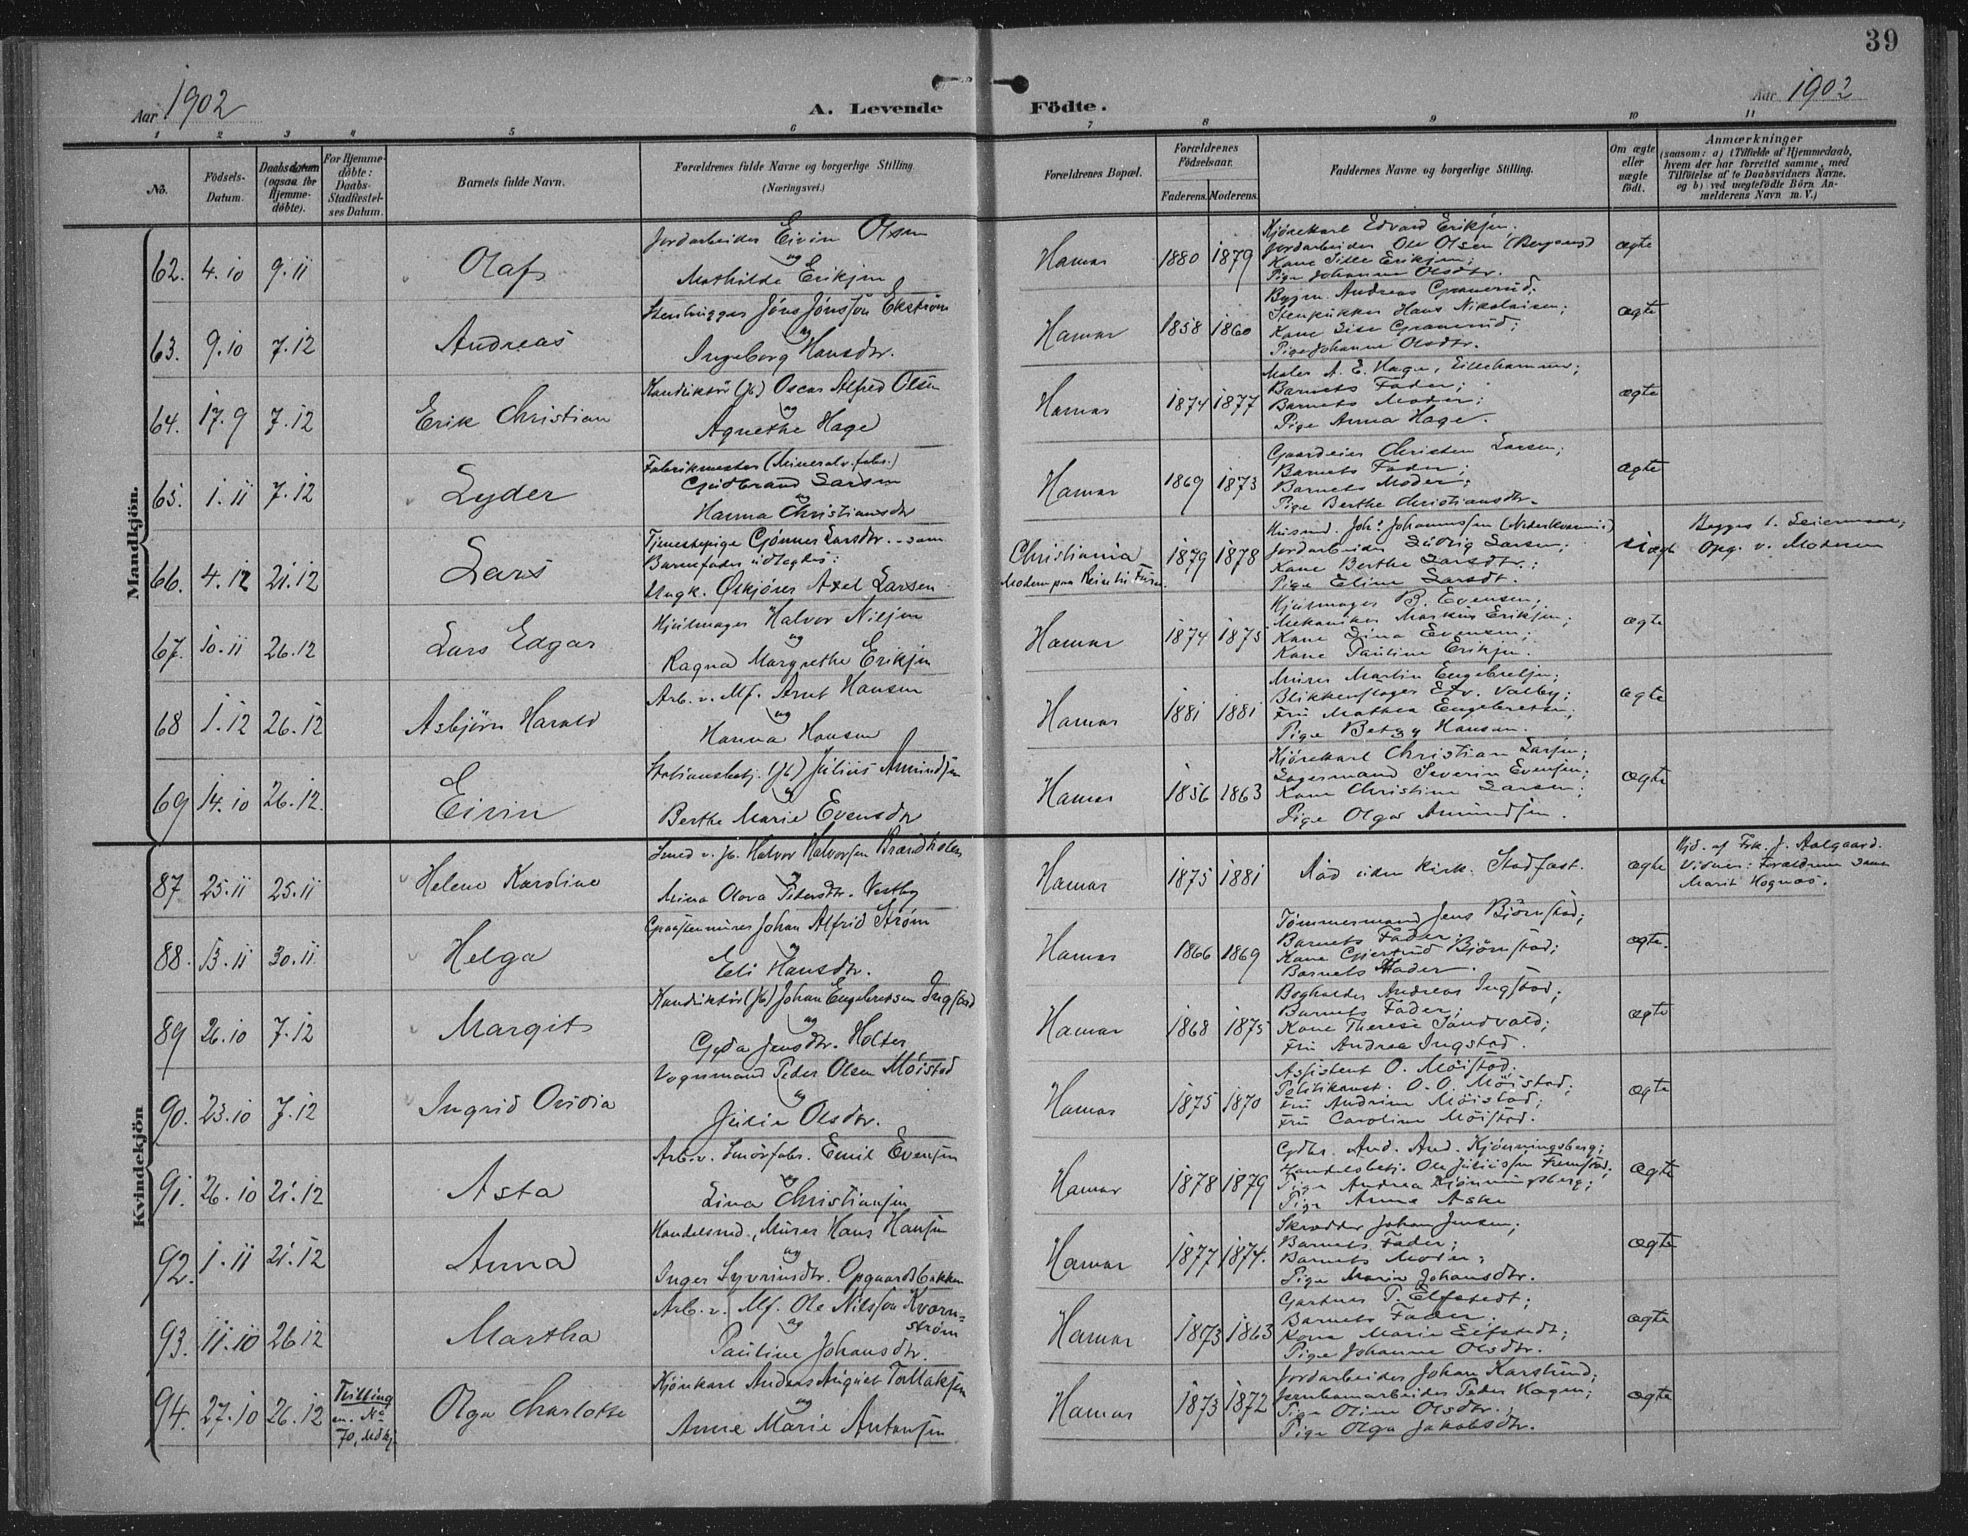 39
Aar 1902
A. Levende Födte.
Aar 1902
1 2 3 4 5 6 7 8 9 10 11
No.
Födsels-Datum.
Daabsdatum (ogsaa for Hjemme-döbte).
For Hjemme-döbte: Daabs-Stadfæstel-ses Datum.
Barnets fulde Navn.
Forældrenes fulde Navne og borgerlige Stilling. (Næringsvei.)
Forældrenes Bopæl.
Forældrenes Födselsaar.
Faderens. Moderens.
Faddernes Navne og borgerlige Stilling.
Om ægte eller uægte födt.
Anmærkninger
(saasom: a) i Tilfælde af Hjemmedaab, hvem der har forrettet samme, med Tilföielse af to Daabsvidners Navne. og b) ved uægtefödte Börn An-melderens Navn m. V.)
Mandkjön.
62. 4.10 9.11 Olaf
Jordarbeider Eivin Olsen
og
Mathilde Eriksen
Hamar 1880 1879
Kjörekarl Edvard Eriksen;
Jordarbeider Ole Olsen (Bergeng)
Kone Eriksen;
Pige Johanne Olsdtr.
ægte
63. 9.10 7.12 Andreas
Stenhugger Jöns Jönsson Ekström
og
Ingeborg Hansdtr.
Hamar 1858 1860
Bygm. Andreas Granerud;
Stenpukker Hans Nikolaisen;
Kone Lise Granerud;
Pige Johanne Olsdtr.
ægte
64. 17.9 7.12 Erik Christian
Konduktör (Jb) Oscar Alfred Olsen
og
Agnethe Hage
Hamar 1874 1877
Maler A. E. Hage, Lillehammer;
Barnets Fader;
Barnets Moder;
Pige Anna Hage.
ægte
65. 1.11 7.12 Lyder
Fabrikmester (Mineralv.fabr.)
Gudbrand Larsen
og
Hanna Christiansdtr
Hamar 1869 1873
Gaardeier Christen Larsen;
Barnets Fader;
Barnets Moder;
Pige Berthe Christiansdtr.
ægte
66. 4.12 21.12 Lars
Tjenestepige Gjönner Larsdtr. - som
Barnefader udlagdes:
Ungk. Ölkjörer Axel Larsen
Christiania
Modern paa Reise til
1879 1878
Husmd. Johs Johannessen
Jordarbeider Ludvig Larsen;
Kone Berthe Larsdtr.;
Pige Eline Larsdt.
uægte
Begges 1. Leiermaal;
Opg. v. Moderen
67. 10.11 26.12 Lars Edgar
Hjulmager Halvor Nilsen
og
Ragna Margrethe Eriksen
Hamar 1874 1875
Hjulmager B. Evensen;
Mekaniker Markus Eriksen;
Kone Lina Evensen;
Kone Pauline Eriksen.
ægte
68 1.12 26.12 Asbjörn Harald
Arb. v. Mf. Arnt Hansen
og
Hanna Hansen
Hamar 1881 1881
Murer Martin Engebretsen;
Blikkenslager Edv. Valby;
Fru Mathea Engebretsen;
Pige Betzy Hansen.
ægte
69 14.10 26.12. Eivin
Stationsbetj. (Jb) Julius Amundsen
og
Berthe Marie Evensdtr
Hamar 1856 1863
Kjörekarl Christian Larsen;
Lagermand Severin Evensen;
Kone Christine Larsen;
Pige Olga Amundsen.
ægte
Kvindekjön
87 25.11 25.11 Helene Karoline
Smed v. Jb. Halvor Halvorsen Brandholen
og
Mina Olava Pedersdtr. Vestby
Hamar 1875 1881
Död uden kirk. Stadfæst.
ægte
Hjd. af Frk. J. Aalgaard.
Vidner: Forældrene samt
Marit Hognæs.
88. 13.11 30.11 Helga
Graastensmurer Johan Alfrid Ström
og
Eli Hansdtr.
Hamar 1866 1869
Tømmermand Jens Björnstad;
Barnets Fader;
Kone Gjertrud Björnstad;
Barnets Moder.
ægte.
89 26.10 7.12 Margit
Konduktör (Jb) Johan Engebretsen Ingstad
og
Gyda Jensdtr. Holter
Hamar 1868 1875
Bogholder Andreas Ingstad;
Barnets Fader;
Kone Therese Sandvold;
Fru Andrea Ingstad.
ægte
90. 23.10 7.12 Ingrid Ovidia
Vognmand Peder Olsen Möistad
og
Julie Olsdtr.
Hamar 1875 1870
Assistent O. Möistad;
Politikonst. O. O. Möistad;
Fru Andrine Möistad;
Fru Caroline Möistad.
ægte
91. 26.10 21.12 Asta
Arb. v. Smörfabr. Emil Evensen
og
Lina Christiansen
Hamar 1878 1879
Gdbr. And. And. Kjönningsberg;
Handelsbetj. Ole Juliussen Fremstad;
Pige Andrea Kjönningsberg;
Pige Anna Aske
ægte
92. 1.11 21.12 Anna
Handelsmd., Murer Hans Hansen
og
Inger Syverinsdtr. Opgaardsbakken
Hamar 1877 1874.
Skrædder Johan Jensen;
Barnets Fader;
Barnets Moder;
Pige Marie Johansdtr.
ægte
93. 11.10 26.12 Martha
Arb. v. Mf. Ole Nilsson Kvarn-
ström
og
Pauline Johansdtr.
Hamar 1873 1863
Gartner P. Elfstedt;
Barnets Fader;
Kone Marie Elfstedt;
Pige Johanne Olsdtr.
ægte
94. 27.10 26.12
Tvilling
m. No
70, Mdkj.
Olga Charlotte
Kjörekarl Andreas August Tollaksen
og
Anne Marie Antonsen
Hamar 1873 1872
Jordarbeider Johan Karslund;
Jernbanearbeider Peder Hagen;
Pige Oline Olsdtr.;
Pige Olga Jakobsdtr.
ægte